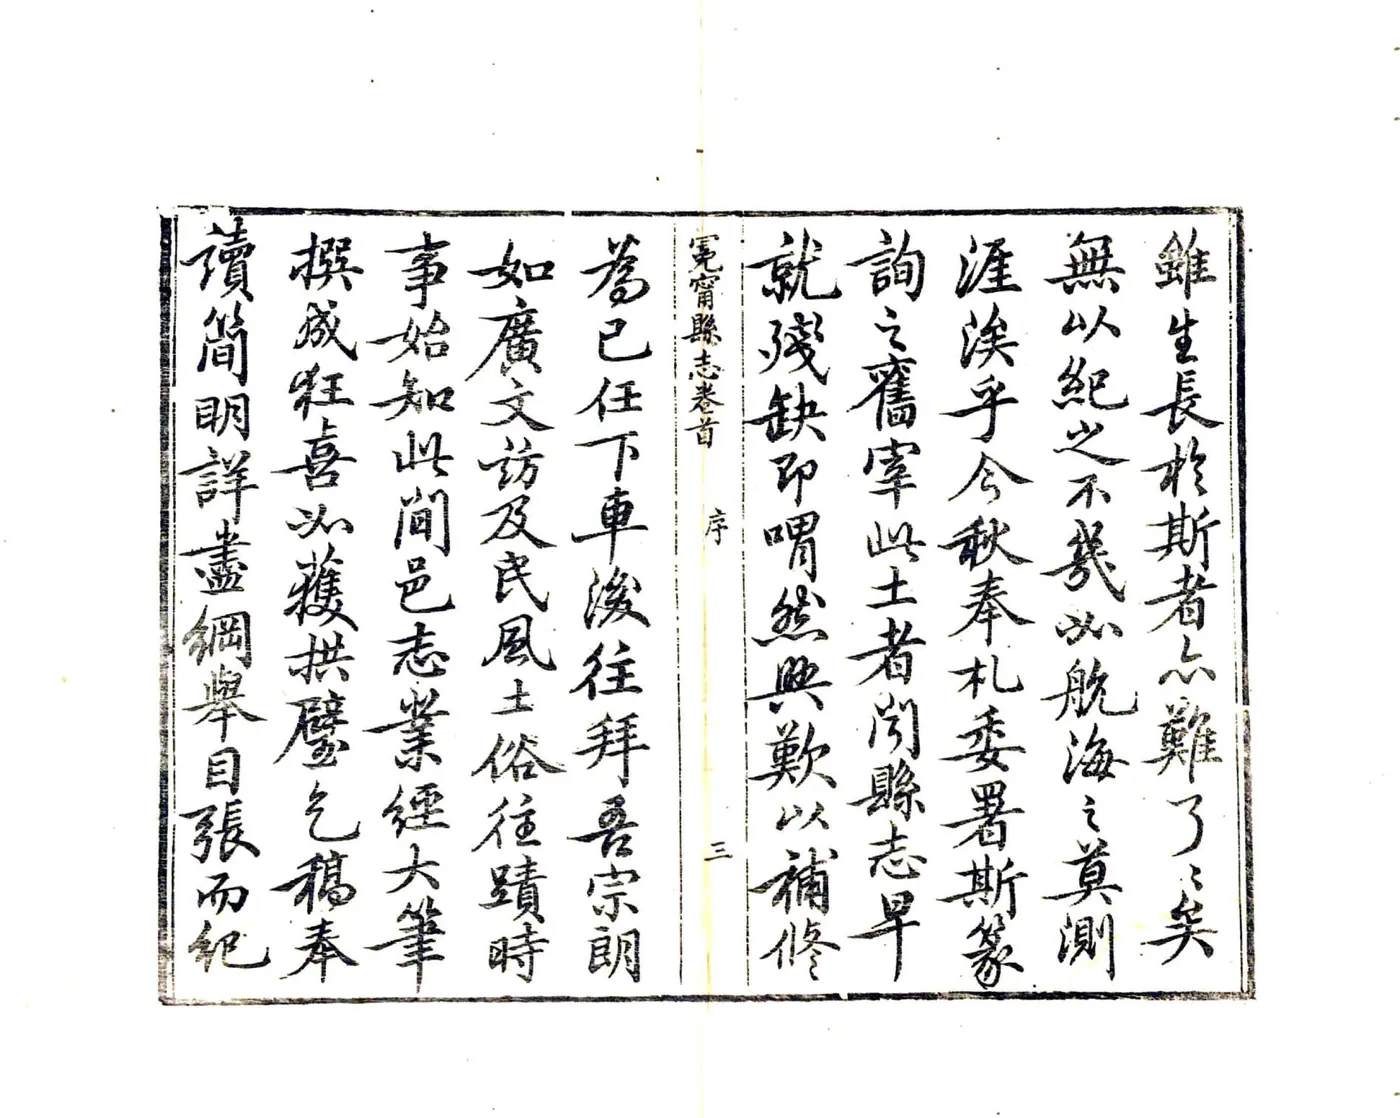 雖生長於斯者亦難了〻矣
無以紀之不幾如航海之莫測
涯涘乎今秋奉札委署斯篆
詢之舊宰此土者聞縣志早
就殘缺即喟然興歎以補修
冕甯縣志卷首 序 三
為己任下車後往拜吾宗朗
如廣文訪及民風土俗往蹟時
事始知此間邑志業經大筆
撰成狂喜如獲拱璧乞稿奉
讀簡明詳盡綱舉目張而紀